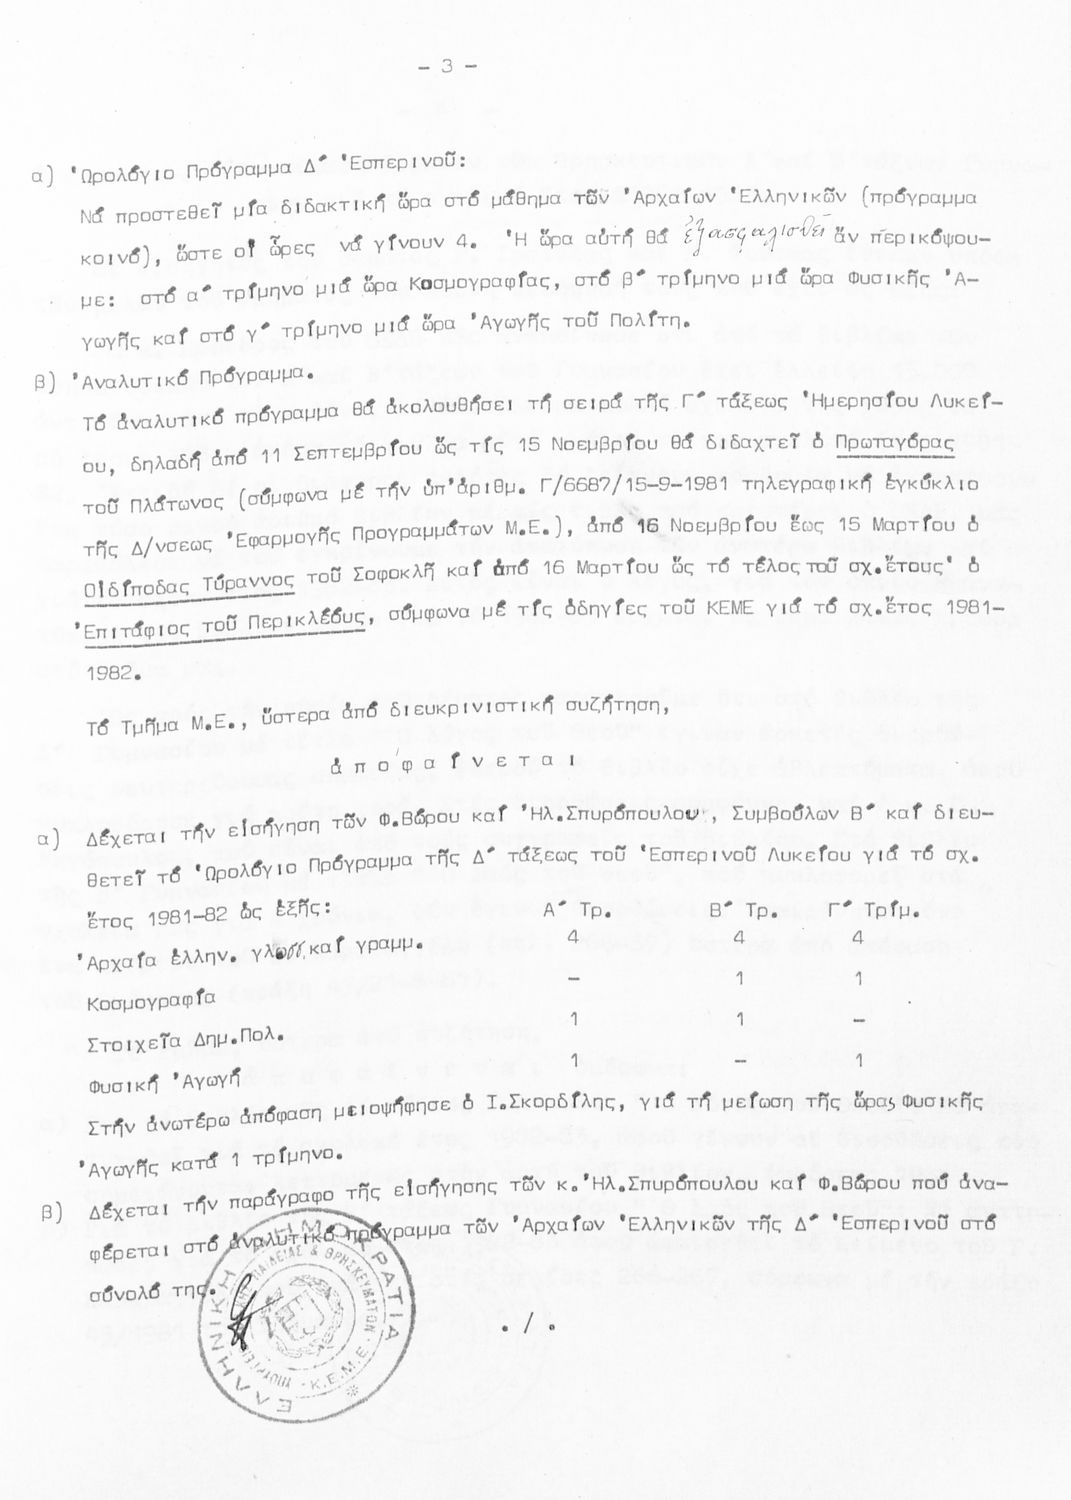 - 3 -
α) Ὡρολόγιο Πρόγραμμα Δ΄ Ἑσπερινοῦ:
Νά προστεθεῖ μία διδακτική ὥρα στό μάθημα τῶν Ἀρχαίων Ἑλληνικῶν (πρόγραμμα
κοινό), ὥστε οἱ ὧρες νά γίνουν 4. Ἡ ὥρα αὐτή θά ἐξασφαλισθεῖ ἄν περικόψου-
με: στό α΄ τρίμηνο μιά ὥρα Κοσμογραφίας, στό β΄ τρίμηνο μιά ὥρα Φυσικῆς Ἀ-
γωγῆς καί στό γ΄ τρίμηνο μιά ὥρα Ἀγωγῆς τοῦ Πολίτη.
β) Ἀναλυτικό Πρόγραμμα.
Τό ἀναλυτικό πρόγραμμα θά ἀκολουθήσει τή σειρά τῆς Γ΄ τάξεως Ἡμερησίου Λυκεί-
ου, δηλαδή ἀπό 11 Σεπτεμβρίου ὥς τίς 15 Νοεμβρίου θά διδαχτεῖ ὁ Πρωταγόρας
τοῦ Πλάτωνος (σύμφωνα μέ τήν ὑπ'ἀριθμ. Γ/6687/15-9-1981 τηλεγραφική ἐγκύκλιο
τῆς Δ/νσεως Ἐφαρμογῆς Προγραμμάτων Μ.Ε.), ἀπό 16 Νοεμβρίου ἕως 15 Μαρτίου ὁ
Οἰδίποδας Τύραννος τοῦ Σοφοκλῆ καί ἀπό 16 Μαρτίου ὥς τό τέλος τοῦ σχ.ἔτους ὁ
Ἐπιτάφιος τοῦ Περικλέους, σύμφωνα μέ τίς ὁδηγίες τοῦ ΚΕΜΕ γιά τό σχ.ἔτος 1981-
1982.
Τό Τμῆμα Μ.Ε., ὕστερα ἀπό διευκρινιστική συζήτηση,
ἀ π ο φ α ί ν ε τ α ι
α) Δέχεται τήν εἰσήγηση τῶν Φ.Βώρου καί Ἠλ.Σπυρόπουλου, Συμβούλων Β΄ καί διευ-
θετεῖ τό Ὡρολόγιο Πρόγραμμα τῆς Δ΄ τάξεως τοῦ Ἑσπερινοῦ Λυκείου γιά τό σχ.
ἔτος 1981-82 ὡς ἑξῆς: Α΄ Τρ. Β΄ Τρ. Γ΄ Τρίμ.
Ἀρχαία ἑλλην. γλῶσσ. καί γραμμ. 4 4 4
Κοσμογραφία - 1 1
Στοιχεῖα Δημ.Πολ. 1 1 -
Φυσική Ἀγωγή 1 - 1
Στήν ἀνωτέρω ἀπόφαση μειοψήφησε ὁ Ι.Σκορδίλης, γιά τή μείωση τῆς ὥρας Φυσικῆς
Ἀγωγῆς κατά 1 τρίμηνο.
β) Δέχεται τήν παράγραφο τῆς εἰσήγησης τῶν κ. Ἠλ.Σπυρόπουλου καί Φ.Βώρου πού ἀνα-
φέρεται στό ἀναλυτικό πρόγραμμα τῶν Ἀρχαίων Ἑλληνικῶν τῆς Δ΄ Ἑσπερινοῦ στό
σύνολό της.
ΕΛΛΗΝΙΚΗ ΔΗΜΟΚΡΑΤΙΑ
ΥΠΟΥΡΓΕΙΟ ΠΑΙΔΕΙΑΣ & ΘΡΗΣΚΕΥΜΑΤΩΝ - Κ.Ε.Μ.Ε
./.